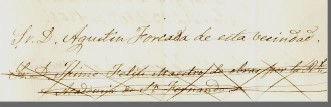 Sr. D. Agustin Forcada de esta vecindad.
Sr. D. Jaime Feliu Maestro de obras por la Rl.
Academia de Sn. Fernando